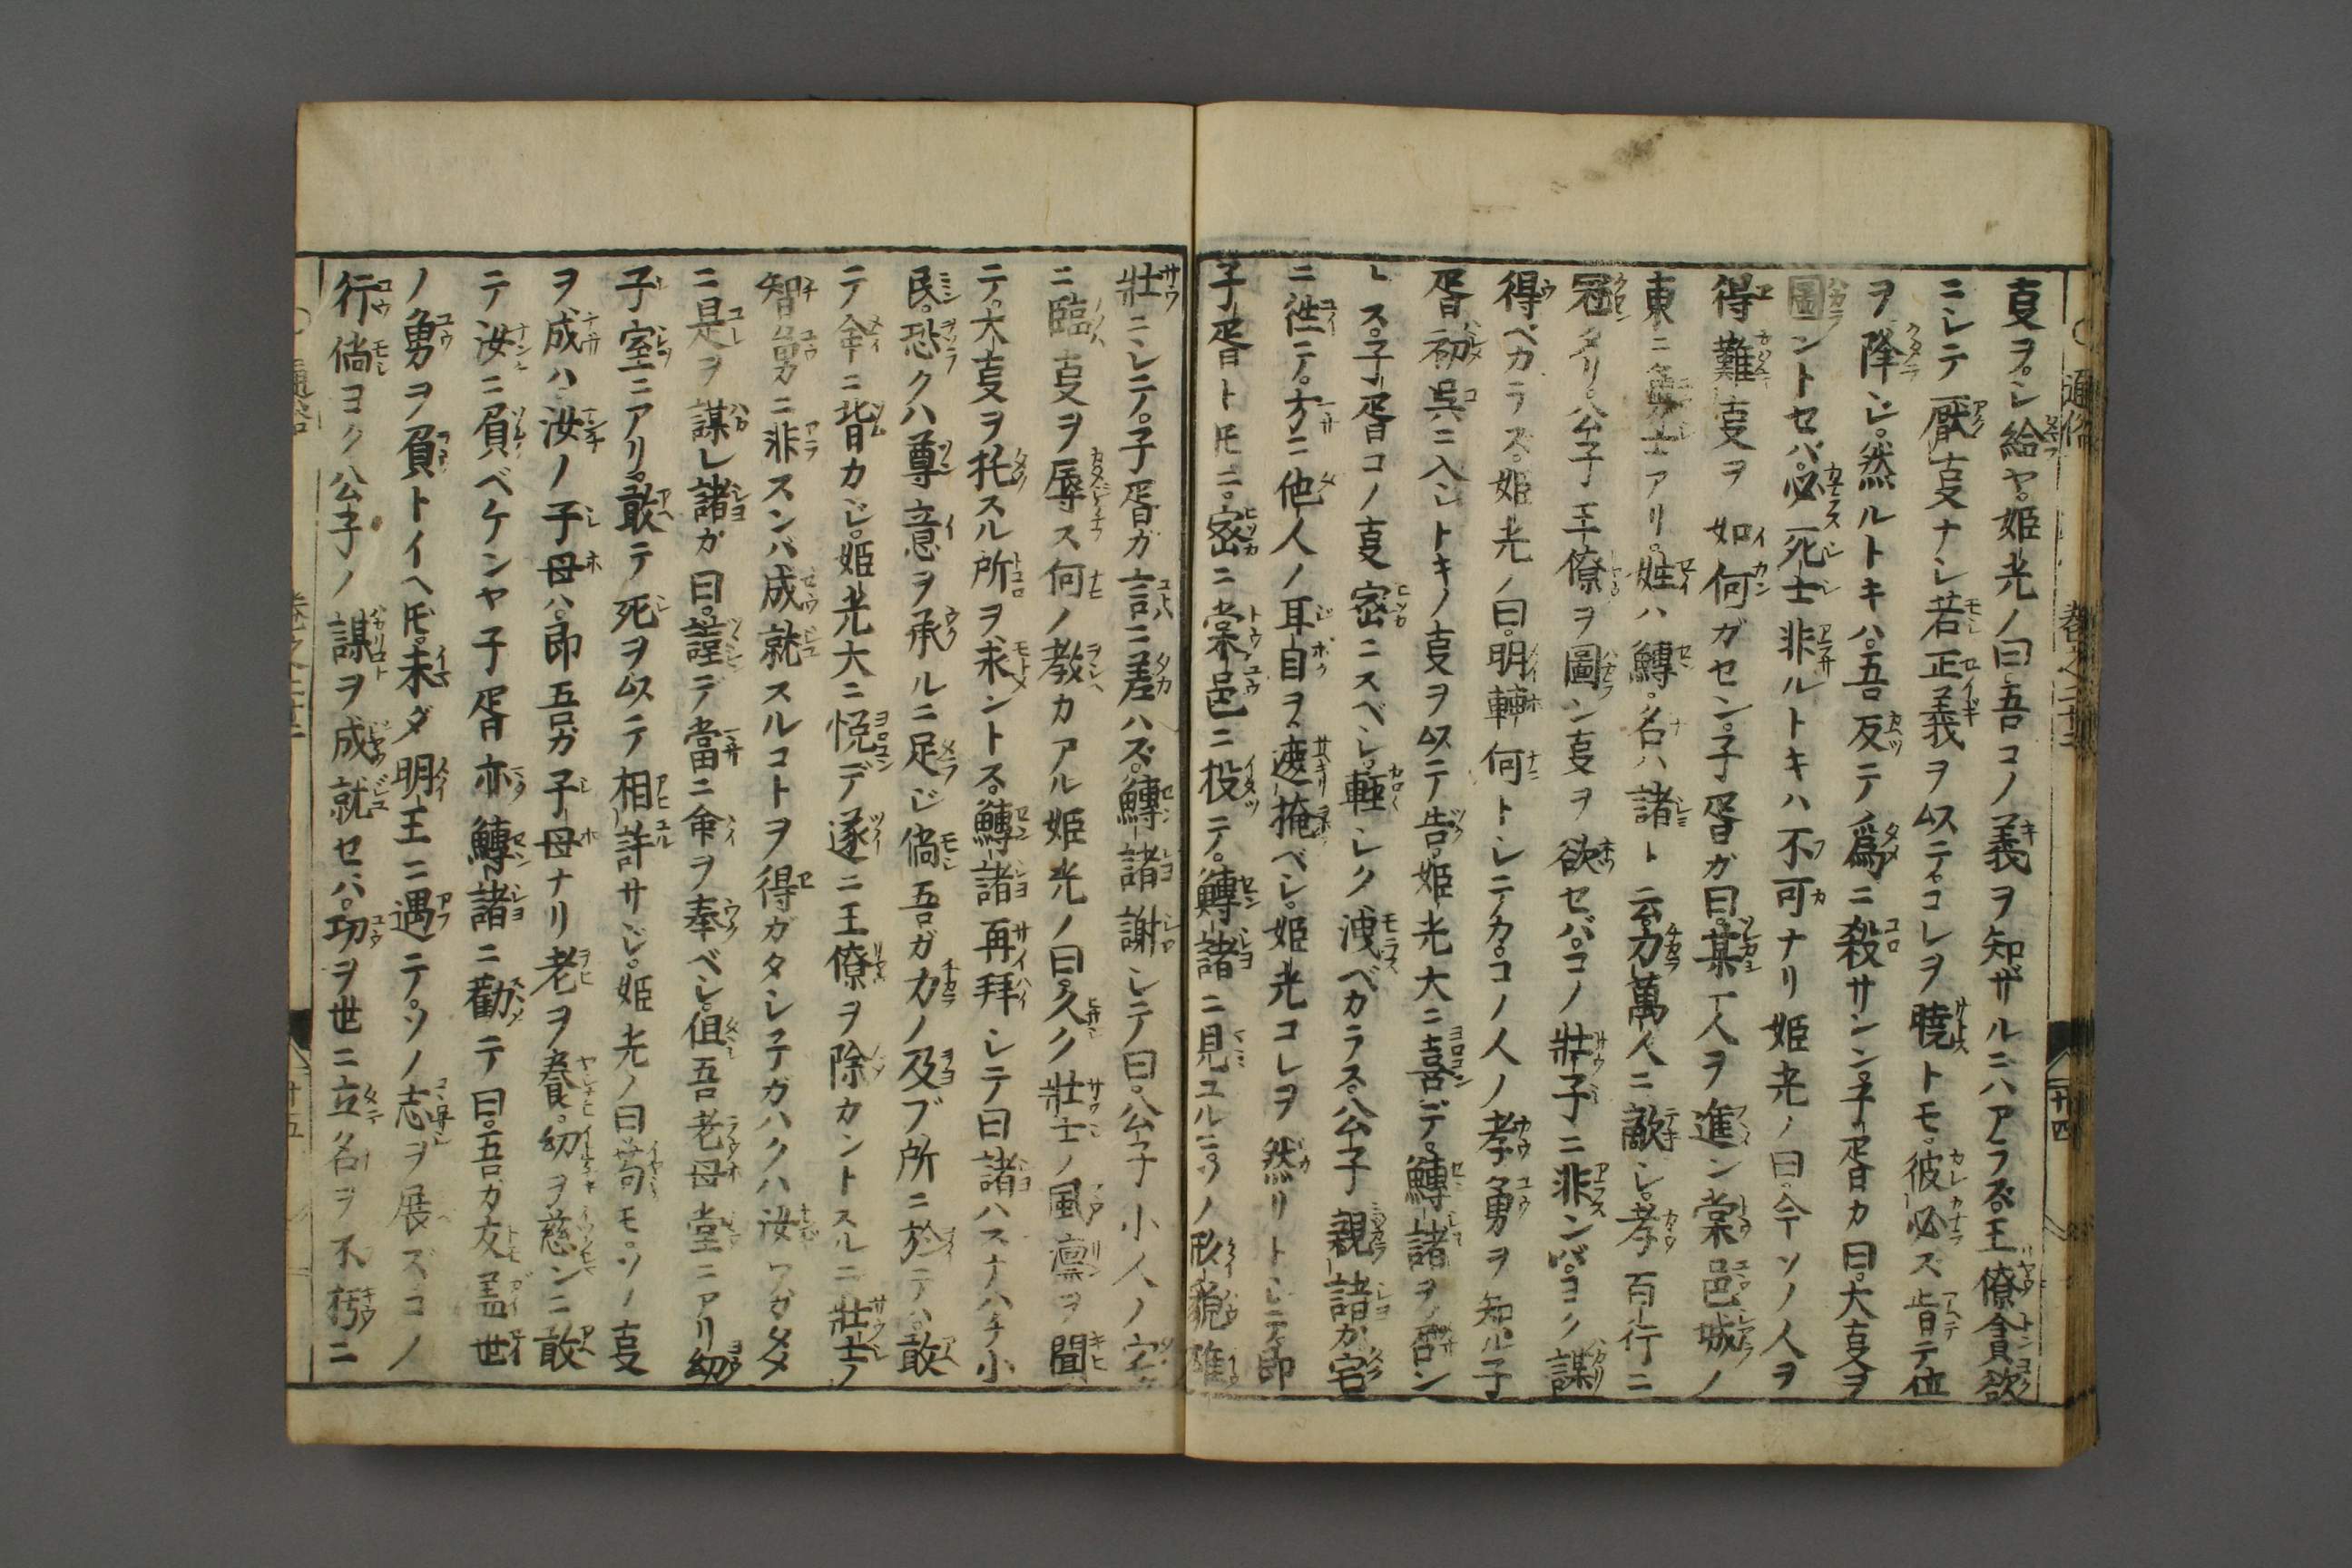 通俗 巻之二十二 二十四
叓ヲシ給ヤ。姫光ノ曰吾コノ義ヲ知ザルニハアラズ。王僚貪欲
ニシテ厭叓ナシ若正義ヲ以テコレヲ曉トモ。彼必ズ肯テ位
ヲ降ジ。然ルトキハ。吾反テ為ニ殺サレン。子胥カ曰。大叓ヲ
圖ントセバ。必死士非ルトキハ不可ナリ姫光ノ曰。今ソノ人ヲ
得難叓ヲ如何ガセン。子胥ガ曰。某一人ヲ進ン棠邑城ノ
東ニ勇士アリ。姓ハ鱄。名ハ諸ト云。力萬人ニ敵シ。孝百行ニ
冠タリ。公子王僚ヲ圖ン叓ヲ欲セバ。コノ壯子ニ非ンバ。ヨク謀
得ベカラズ。姫光ノ曰。明輔何トシテカ。コノ人ノ孝勇ヲ知ル子
胥初呉ニ入シトキノ叓ヲ以テ告。姫光大ニ喜デ。鱄諸ヲ召ン
トス。子胥コノ叓密ニスベシ。輕シク洩ベカラス。公子親諸カ宅
ニ徃テ。方ニ他人ノ耳目ヲ。遮掩ベシ。姫光コレヲ然リトシテ。即
子胥トモニ。密ニ棠邑ニ投テ。鱄諸ニ見ユルニ。ソノ形貌雄
壯ニシテ。子胥ガ言ニ差ハズ。鱄諸謝シテ曰。公子小人ノ宅
ニ臨叓ヲ辱ス何ノ教カアル姫光ノ曰。久ク壯士ノ風凛ヲ聞
テ。大叓ヲ托スル所ヲ求ントス。鱄諸再拜シテ曰諸ハスナハチ小
民。恐クハ尊意ヲ承ルニ足ジ倘吾ガ力ノ及ブ所ニ於テハ。敢
テ命ニ背カジ。姫光大ニ悦デ遂ニ王僚ヲ除カントスルニ壯士ノ
智勇ニ非スンバ成就スルコトヲ得ガタシ子ガハクハ汝ワガタメ
ニ是ヲ謀レ諸カ曰。謹デ當ニ命ヲ奉ベシ。但吾老母堂ニアリ幼
子室ニアリ。敢テ死ヲ以テ相許サジ。姫光ノ曰苟モ。ソノ叓
ヲ成ハ汝ノ子母ハ。即吾カ子母ナリ老ヲ養。幼ヲ慈ンニ敢
テ汝ニ負ベケンヤ子胥亦鱄諸ニ勸テ曰。吾カ友盖世
ノ勇ヲ負トイヘトモ。未ダ明王ニ遇テ。ソノ志ヲ展ズコノ
行倘ヨク公子ノ謀ヲ成就セバ。功ヲ世ニ立名ヲ不朽ニ
通俗 巻之二十二 二十五